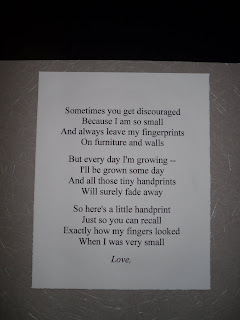 Sometimes you get discouraged
Because I am so small
And always leave my fingerprints
On furniture and walls
But every day I'm growing --
I'll be grown some day
And all those tiny handprints
Will surely fade away
So here's a little handprint
Just so you can recall
Exactly how my fingers looked
When I was very small
Love,